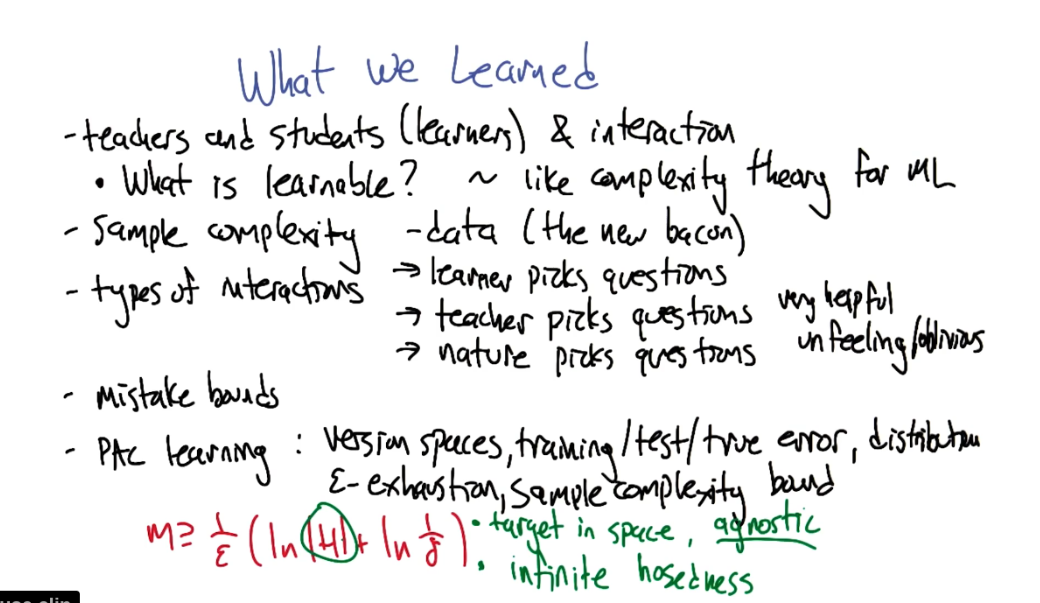 What we Learned
- teachers and students (learners) & interaction
• What is learnable? ~ like complexity theory for ML
- Sample complexity - data (the new bacon)
- types of interactions → learner picks questions
→ teacher picks questions very helpful
→ nature picks questions unfeeling/oblivious
- mistake bounds
- PAC learning : version spaces, training/test/true error, distribution
ε-exhaustion, sample complexity bound
m ≥ 1/ε (ln |H| + ln 1/δ) • target in space, agnostic
• infinite hosedness